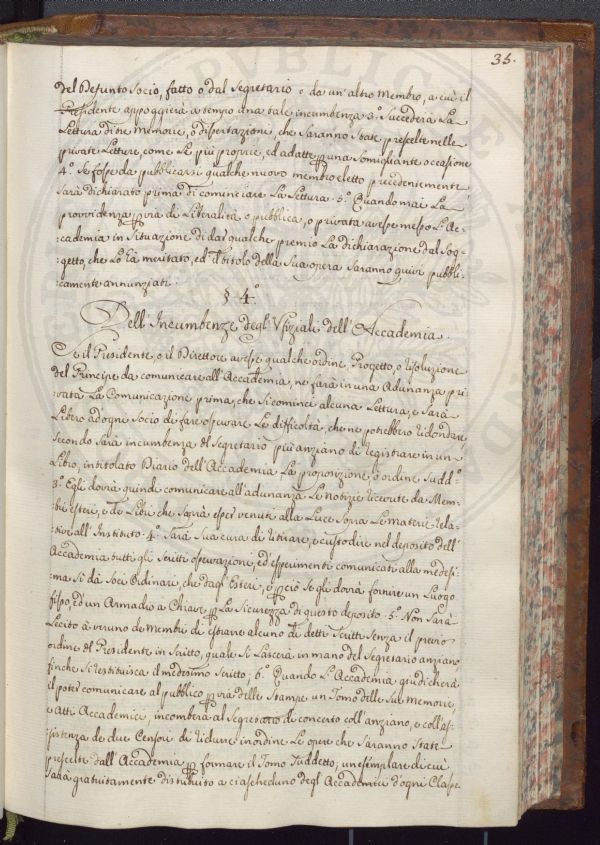 35.
del Defunto Socio, fatto o dal Segretario o da un'altro Membro, a cui il
Presidente appoggierà a tempo una tale incumbenza 3.° Succederà La
Lettura di tre Memorie, o dissertazione, che Saranno State prescelte nelle
private Letture, come Le più proprie, ed adatte per una Somigliante occasione
4.° Se fosse da pubblicarsi qualche nuovo membro eletto precedentemente
Sarà dichiarato prima di cominciare La Lettura. 5.° Quando mai La
provvidenza per via di Liberalità o pubblica, o privata avesse messo L'Ac-
:cademia in Situazione di dar qualche premio La dichiarazione dal Sog-
:getto, che Lo ha meritato, ed il titolo della Sua opera Saranno quivi pubbli-
:camente annunziati.
§ 4.°
Dell'Incumbenze degl'Vfiziali dell'Accademia.
Se il Presidente, o il Direttore avesse qualche ordine, Progetto, o risoluzione
del Principe da comunicare all'Accademia, ne farà in una Adunanza pri
:vata La Comunicazione prima, che Si cominci alcuna Lettura, e Sarà
Libero ad ogni Socio di fare osservare Le difficoltà, che ne potrebbero ridondare
Secondo Sarà incumbenza del Segretario più anziano di registrare in un
Libro, intitolato Diario dell'Accademia La proposizione, o ordine Sudd.°
3.° Egli dovrà quindi comunicare all'adunanza Le notizie ricevute da Mem-
:bri esteri, e de Libri che Saprà esser venuti alla Luce Sopra Le materie rela-
:tive all'Instituto. 4.° Sarà Sua cura di ritirare, e custodire nel deposito dell'
Accademia tutti gli Scritti osservazioni, ed'esperimenti comunicati alla medesi
:ma Sì dà Soci Ordinari, che dagl'Esteri, e perciò Se gli dovrà fornire un Luogo
fisso, ed'un Armadio a Chiave per La Sicurezza di questo deposito. 5.° Non Sarà
Lecito à veruno de membri di estrarre alcuno de detti Scritti Senza il previo
ordine del Presidente in Scritto, quale Si Lascerà in mano del Segretario anziano
finche Si restituisca il medesimo Scritto; 6.° Quando L'Accademia giudicherà
il poter comunicare al pubblico per via delle Stampe un Tomo delle Sue Memorie,
e Atti Accademici, incomberà al Segretario di concerto coll'anziano, e coll'as-
:sistenza de due Censori di ridurre in ordine Le opere che Saranno State
prescelte dall'Accademia per formare il Tomo Suddetto; un esemplare di cui
Sarà gratuitamente distribuito a ciascheduno degl'Accademici d'ogni Classe